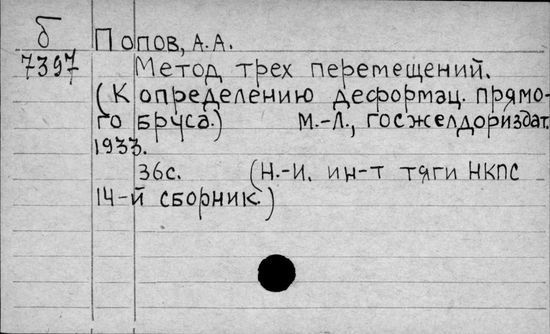 б Попов, А.А.
7397 Метод трех перемещений.
(К определению деформац. прямо-
го бруса.) М.-Л., госжелдориздат,
1933.
36с. (Н.-И. ин-т тяги НКПС
14-й сборник.)